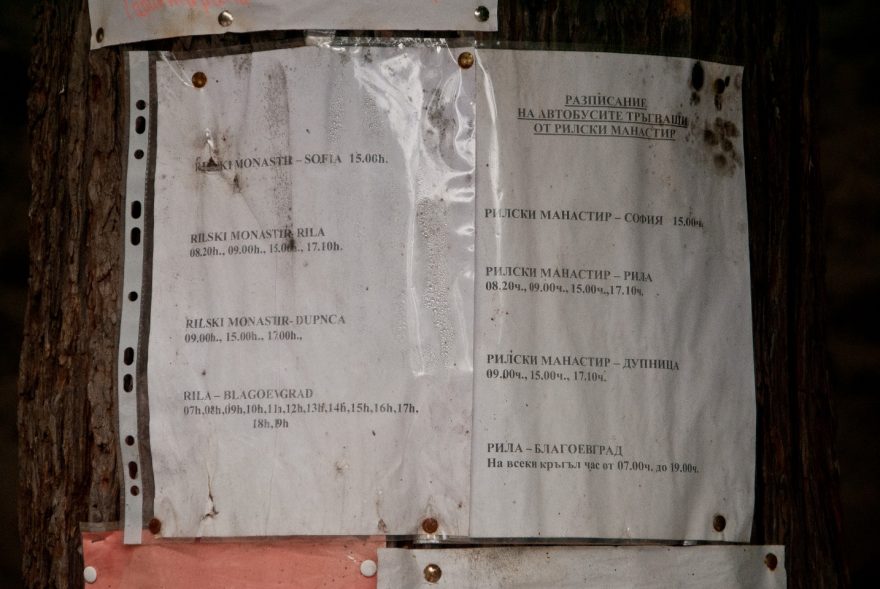 RILSKI MONASTIR – SOFIA 15.00h.
RILSKI MONASTIR-RILA
08.20h., 09.00h., 15.00h., 17.10h.
RILSKI MONASTIR- DUPNCA
09.00h., 15.00h., 17.00h.,
RILA – BLAGOEVGRAD
07h,08h,09h,10h,11h,12h,13h,14h,15h,16h,17h,
18h,19h
РАЗПИСАНИЕ
НА АВТОБУСИТЕ ТРЪГВАЩИ
ОТ РИЛСКИ МАНАСТИР
РИЛСКИ МАНАСТИР – СОФИЯ 15.00ч.
РИЛСКИ МАНАСТИР – РИЛА
08.20ч., 09.00ч., 15.00ч.,17.10ч.
РИЛСКИ МАНАСТИР – ДУПНИЦА
09.00ч., 15.00ч., 17.10ч.
РИЛА – БЛАГОЕВГРАД
На всеки кръгъл час от 07.00ч. до 19.00ч.